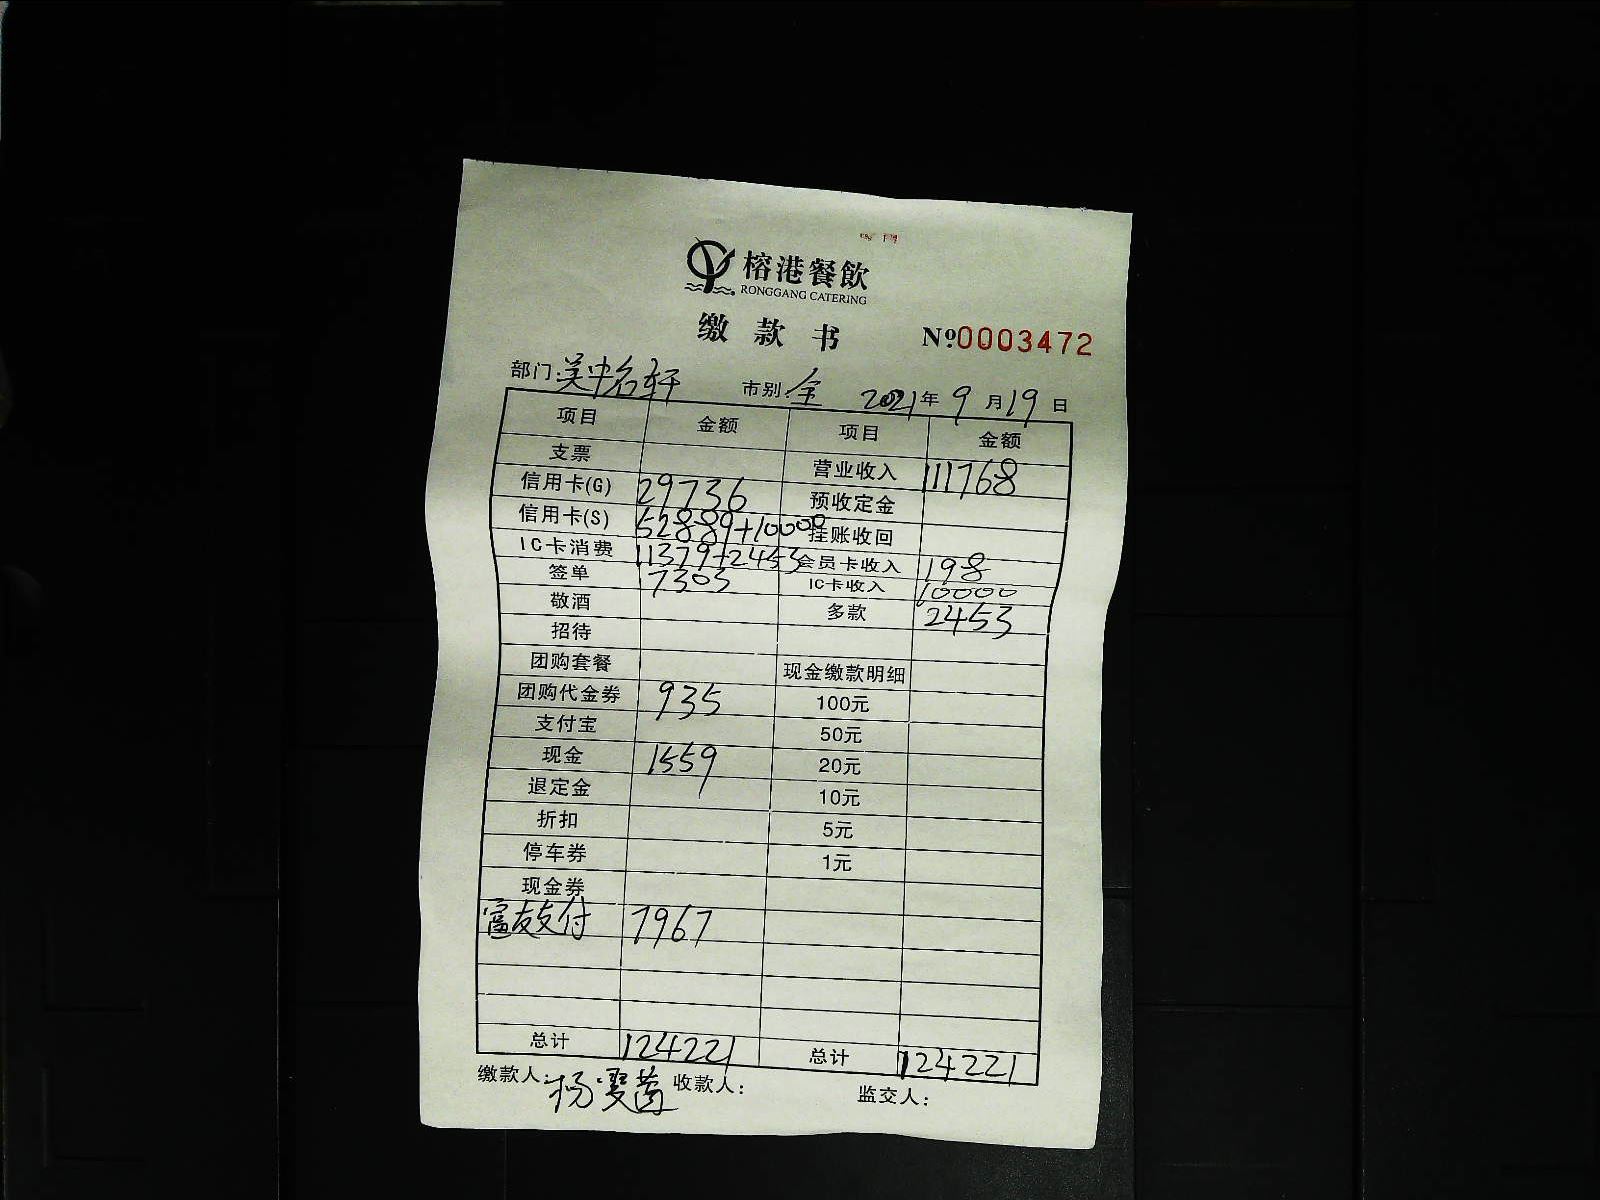 榕港餐飲
RONGGANG CATERING
缴款书 №0003472
部门:吴中名轩 市别:全 2021年9月19日
项目 金额 项目 金额
支票 营业收入 111768
信用卡(G) 29736 预收定金
信用卡(S) 52889+10000 挂账收回
IC卡消费 11379+2453 会员卡收入 198
签单 7303 IC卡收入 10000
敬酒 多款 2453
招待
团购套餐 现金缴款明细
团购代金券 935 100元
支付宝 50元
现金 1559 20元
退定金 10元
折扣 5元
停车券 1元
现金券
富友支付 7967
总计 124221 总计 124221
缴款人:杨 收款人: 监交人: